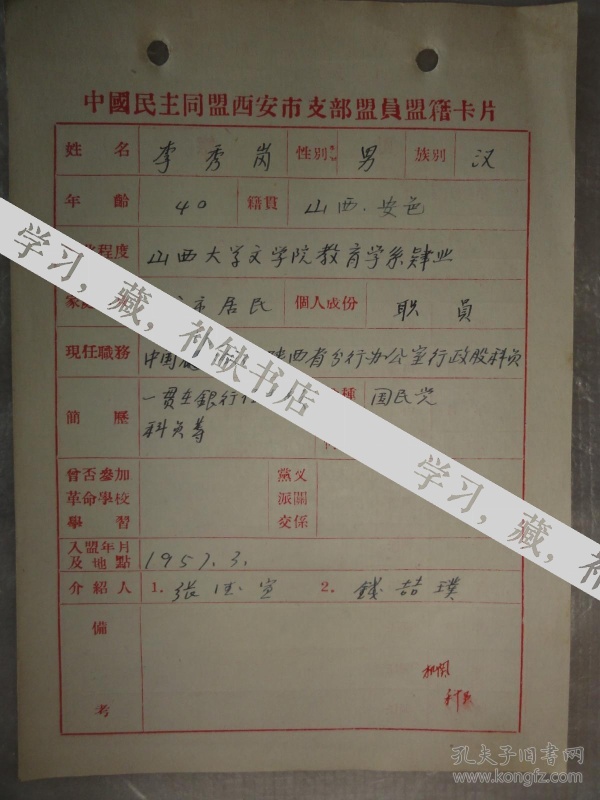 中國民主同盟西安市支部盟員盟籍卡片
姓名 李秀岗 性別 男 族別 汉
年齡 40 籍貫 山西.安邑
程度 山西大学文学院教育学系肄业
市居民 個人成份 职員
現任職務 中国 陕西省分行办公室行政股科员
簡歷 一贯在銀行 種 国民党
科员等
曾否參加 黨
革命學校 派關
學習 交係
入盟年月
及地點 1957.3.
介紹人 1. 張 宣 2. 錢喆璞
備
考
机関
学习，藏，补缺书店
学习，藏，补
孔夫子旧书网
www.kongfz.com